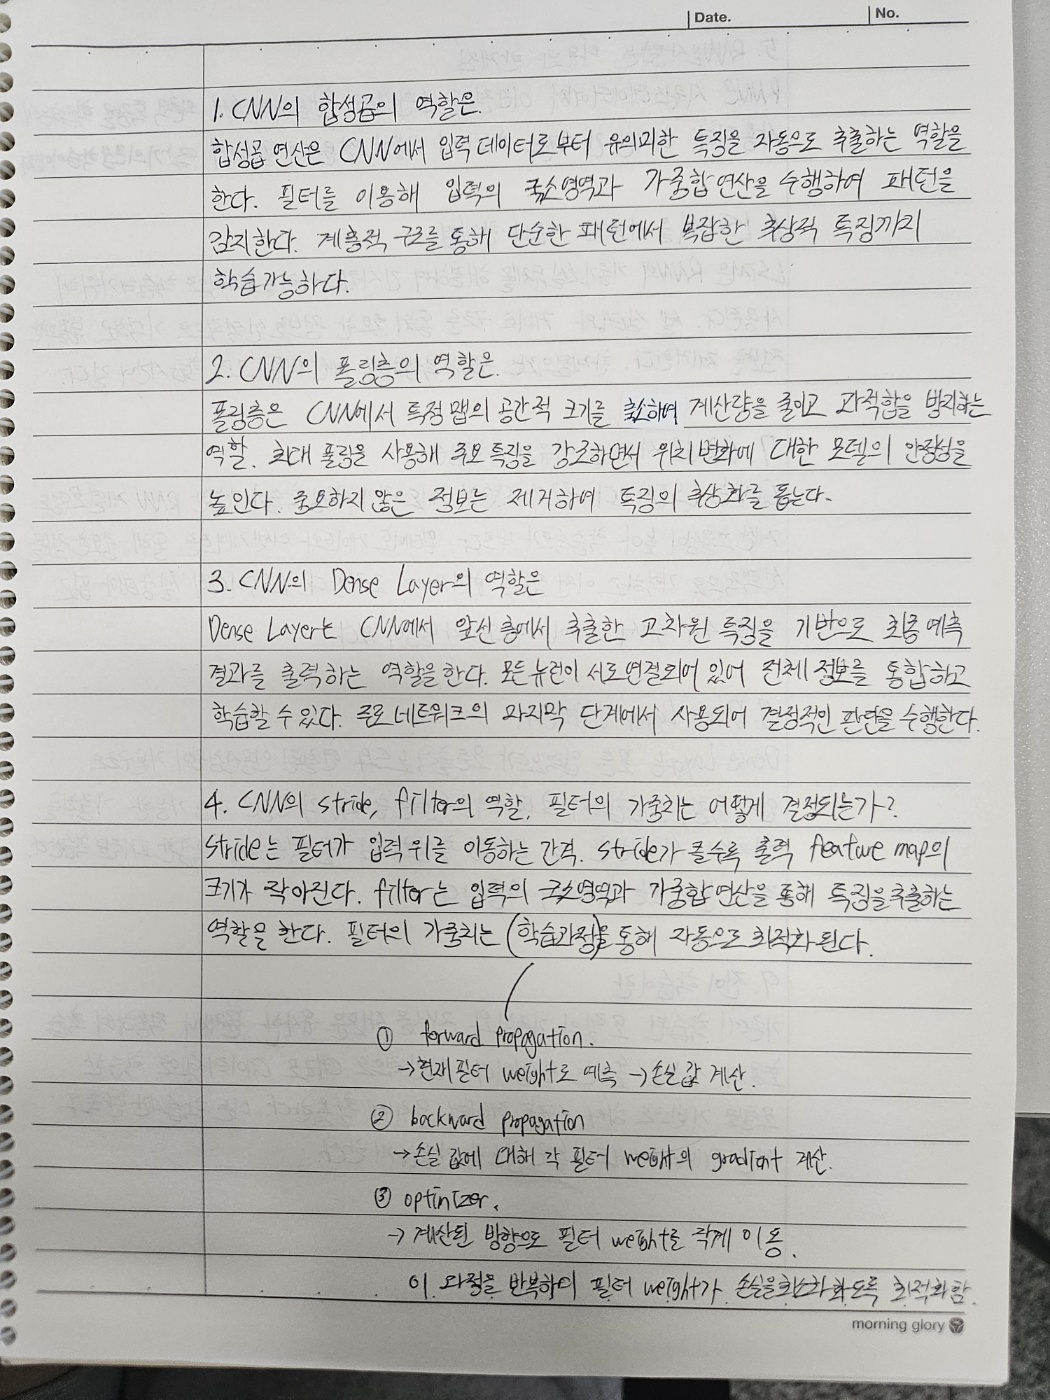 Date.
No.
1. CNN의 합성곱의 역할은.
합성곱 연산은 CNN에서 입력 데이터로부터 유의미한 특징을 자동으로 추출하는 역할을
한다. 필터를 이용해 입력의 국소영역과 가중합 연산을 수행하여 패턴을
감지한다. 계층적 구조를 통해 단순한 패턴에서 복잡한 추상적 특징까지
학습가능하다.
2. CNN의 풀링층의 역할은.
풀링층은 CNN에서 특징 맵의 공간적 크기를 축소하여 계산량을 줄이고 과적합을 방지하는
역할. 최대 풀링을 사용해 주요 특징을 강조하면서 위치변화에 대한 모델의 안정성을
높인다. 중요하지 않은 정보는 제거하여 특징의 추상화를 돕는다.
3. CNN의 Dense Layer의 역할은
Dense Layer는 CNN에서 앞선 층에서 추출한 고차원 특징을 기반으로 최종 예측
결과를 출력하는 역할을 한다. 모든 뉴런이 서로 연결되어 있어 전체 정보를 통합하고
학습할 수 있다. 주로 네트워크의 마지막 단계에서 사용되어 결정적인 판단을 수행한다.
4. CNN의 stride, filter의 역할. 필터의 가중치는 어떻게 결정되는가?
stride는 필터가 입력 위를 이동하는 간격. stride가 클수록 출력 feature map의
크기가 작아진다. filter는 입력의 국소영역과 가중합 연산을 통해 특징을 추출하는
역할을 한다. 필터의 가중치는 (학습과정)을 통해 자동으로 최적화 된다.
① forward propagation.
→현재 필터 weight로 예측 → 손실 값 계산.
② backward propagation
→손실 값에 대해 각 필터 weight의 gradient 계산.
③ optimizer.
→ 계산된 방향으로 필터 weight를 작게 이동.
이 과정을 반복하여 필터 weight가 손실을 최소화 하도록 최적화함.
morning glory